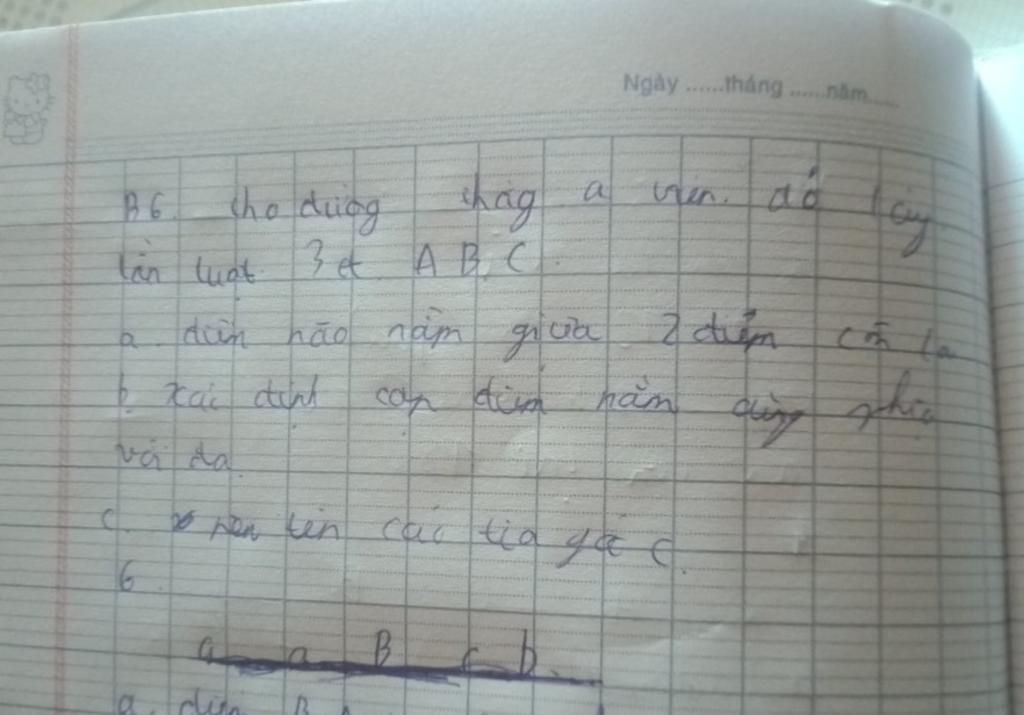 Ngày ......tháng ......năm......
B6. cho đường thág a trên. đó lấy
lần lượt. 3 đ A B, C.
a. điểm nào nằm giữa 2 điểm còn lại
b. xác định cặp điểm nằm cùng phía
với
c. nêu tên các tia gốc C.
6.
a a B c b
a. điểm B